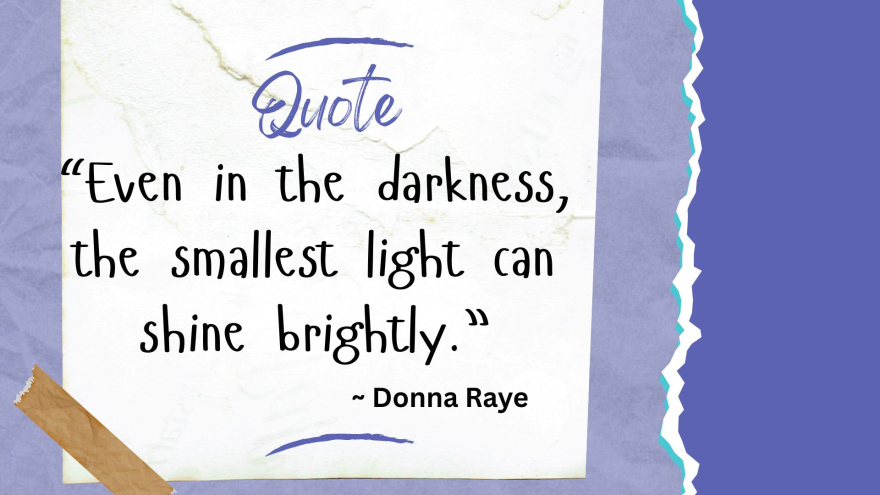 Quote
“Even in the darkness,
the smallest light can
shine brightly.”
~ Donna Raye